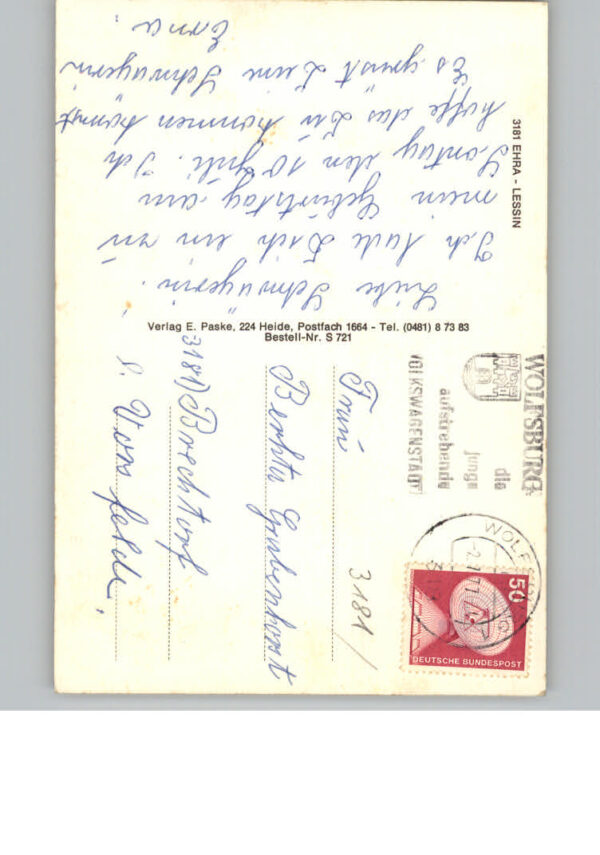 Liebe Schwägerin.
Ich lade Dich ein zu
mein Geburtstag am
Sontag den 10 Juli. Ich
hoffe das Du kommen kannst
Es grüst Deine Schwägerin
Erna.
3181 EHRA - LESSIN
Verlag E. Paske, 224 Heide, Postfach 1664 - Tel. (0481) 8 73 83
Bestell-Nr. S 721
WOLFSBURG
die
junge
aufstrebende
VOLKSWAGENSTADT
WOLFSBURG
50
DEUTSCHE BUNDESPOST
Frau
Berhta Grubenhorst
3181) Brechtorf
ü. Vorsfelde.
3181/